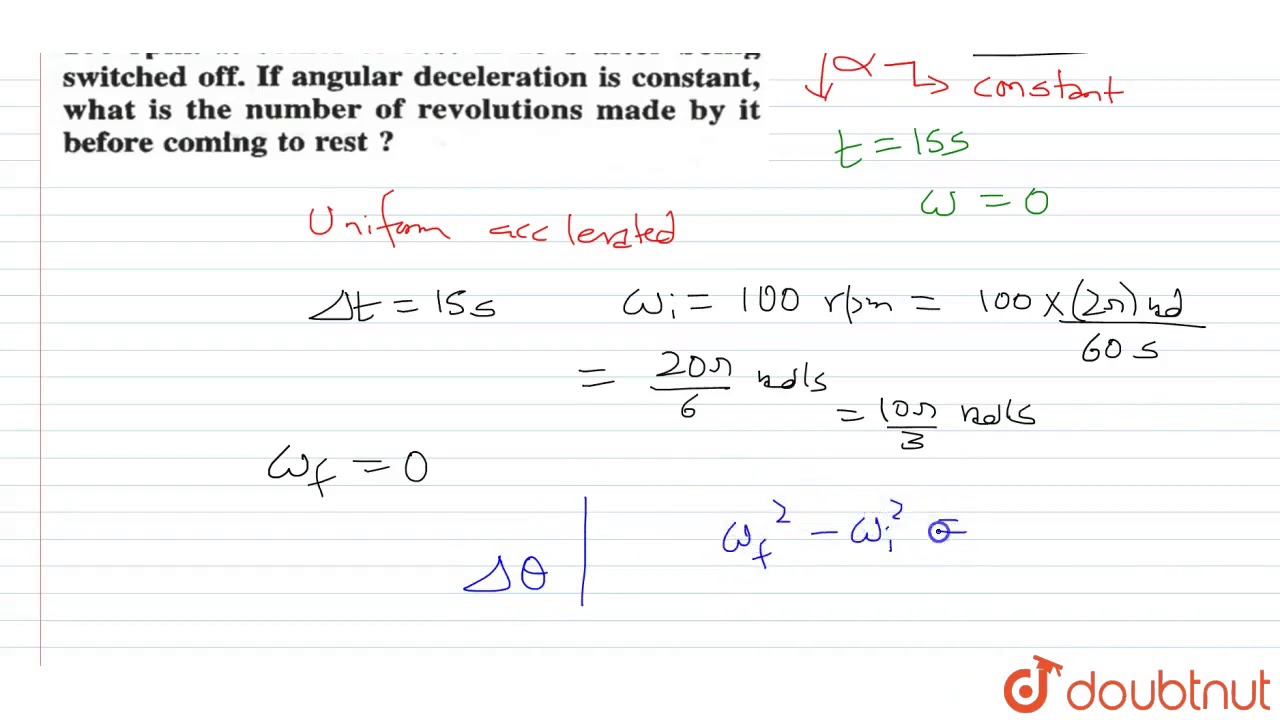 switched off. If angular deceleration is constant,
what is the number of revolutions made by it
before coming to rest ?
α constant
t = 15s
ω = 0
Uniform acclerated
Δt = 15s ωi = 100 rpm = 100 × (2π) rad / 60 s
= 20π / 6 rad/s
= 10π / 3 rad/s
ωf = 0
ωf² - ωi² =
Δθ
doubtnut